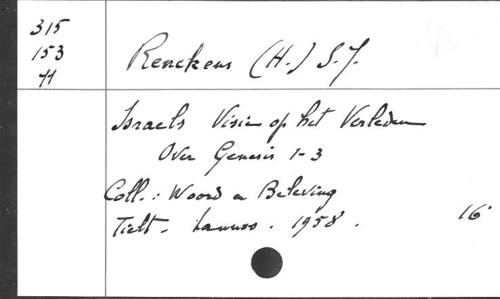 315
153
71
Renckens (H.) S.J.
Israels Visie op het Verleden
Over Genesis 1-3
Coll.: Woord en Beleving
Tielt. Lannoo. 1958.
16°